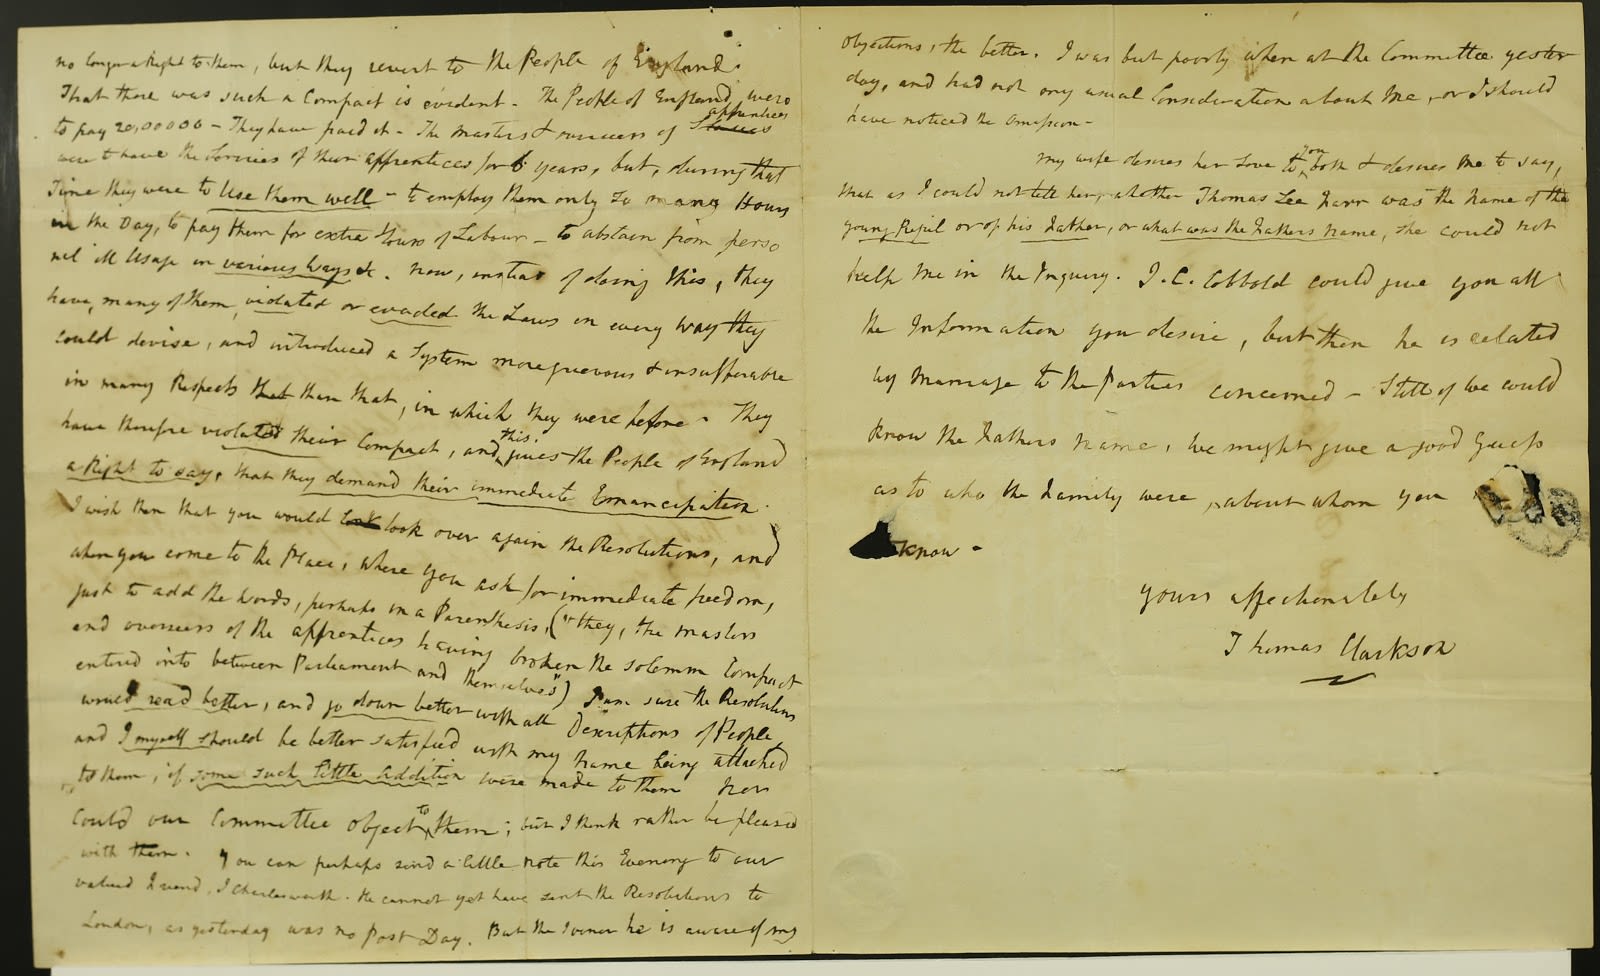 no longer a Right to them, but they revert to the People of England.
That there was such a Compact is evident - The People of England were
to pay 20,000000 - They have paid it - The Masters & overseers of Slaves apprentices
were to have the Services of their apprentices for 6 years, but, during that
Time they were to Use them well - to employ them only so many Hours
in the Day, to pay them for extra Hours of Labour - to abstain from perso
nel ill Usage in various ways &c. Now, instead of doing this, they
have, many of them, violated or evaded the Laws in every way they
could devise, and introduced a System more grievous & insufferable
in many Respects that than that, in which they were before - They
have therefore violated their Compact, and this gives the People of England
a Right to say, that they demand their immediate Emancipation.
I wish then that you would look look over again the Resolutions, and
when you come to the Place, where you ask for immediate freedom,
just to add the words, perhaps in a Parenthesis, ("they, the masters
and overseers of the apprentices having broken the solemn Compact
entered into between Parliament and themselves") I am sure the Resolutions
would read better, and go down better with all Descriptions of People
and I myself should be better satisfied with my name being attached
to them, if some such little addition were made to them nor
could our Committee object to them; but I think rather be pleased
with them. You can perhaps send a little note this Evening to our
valued Friend, J Charlesworth. He cannot yet have sent the Resolutions to
London, as yesterday was no Post Day. But the sooner he is aware of my
objections, the better. I was but poorly when at the Committee yester
day, and had not my usual Consideration about me, or I should
have noticed the omission -
My wife desires her Love to you both & desires me to say,
that as I could not tell her, whether Thomas Lee was the Name of the
young Pupil or of his Father, or what was the Fathers name, she could not
help me in the Inquiry. J. C. Cobbold could give you all
the Information you desire, but then he is related
by Marriage to the Parties concerned - Still if we could
know the Fathers name, we might give a good Guess
as to who the Family were, about whom you
know -
Yours affectionately
Thomas Clarkson